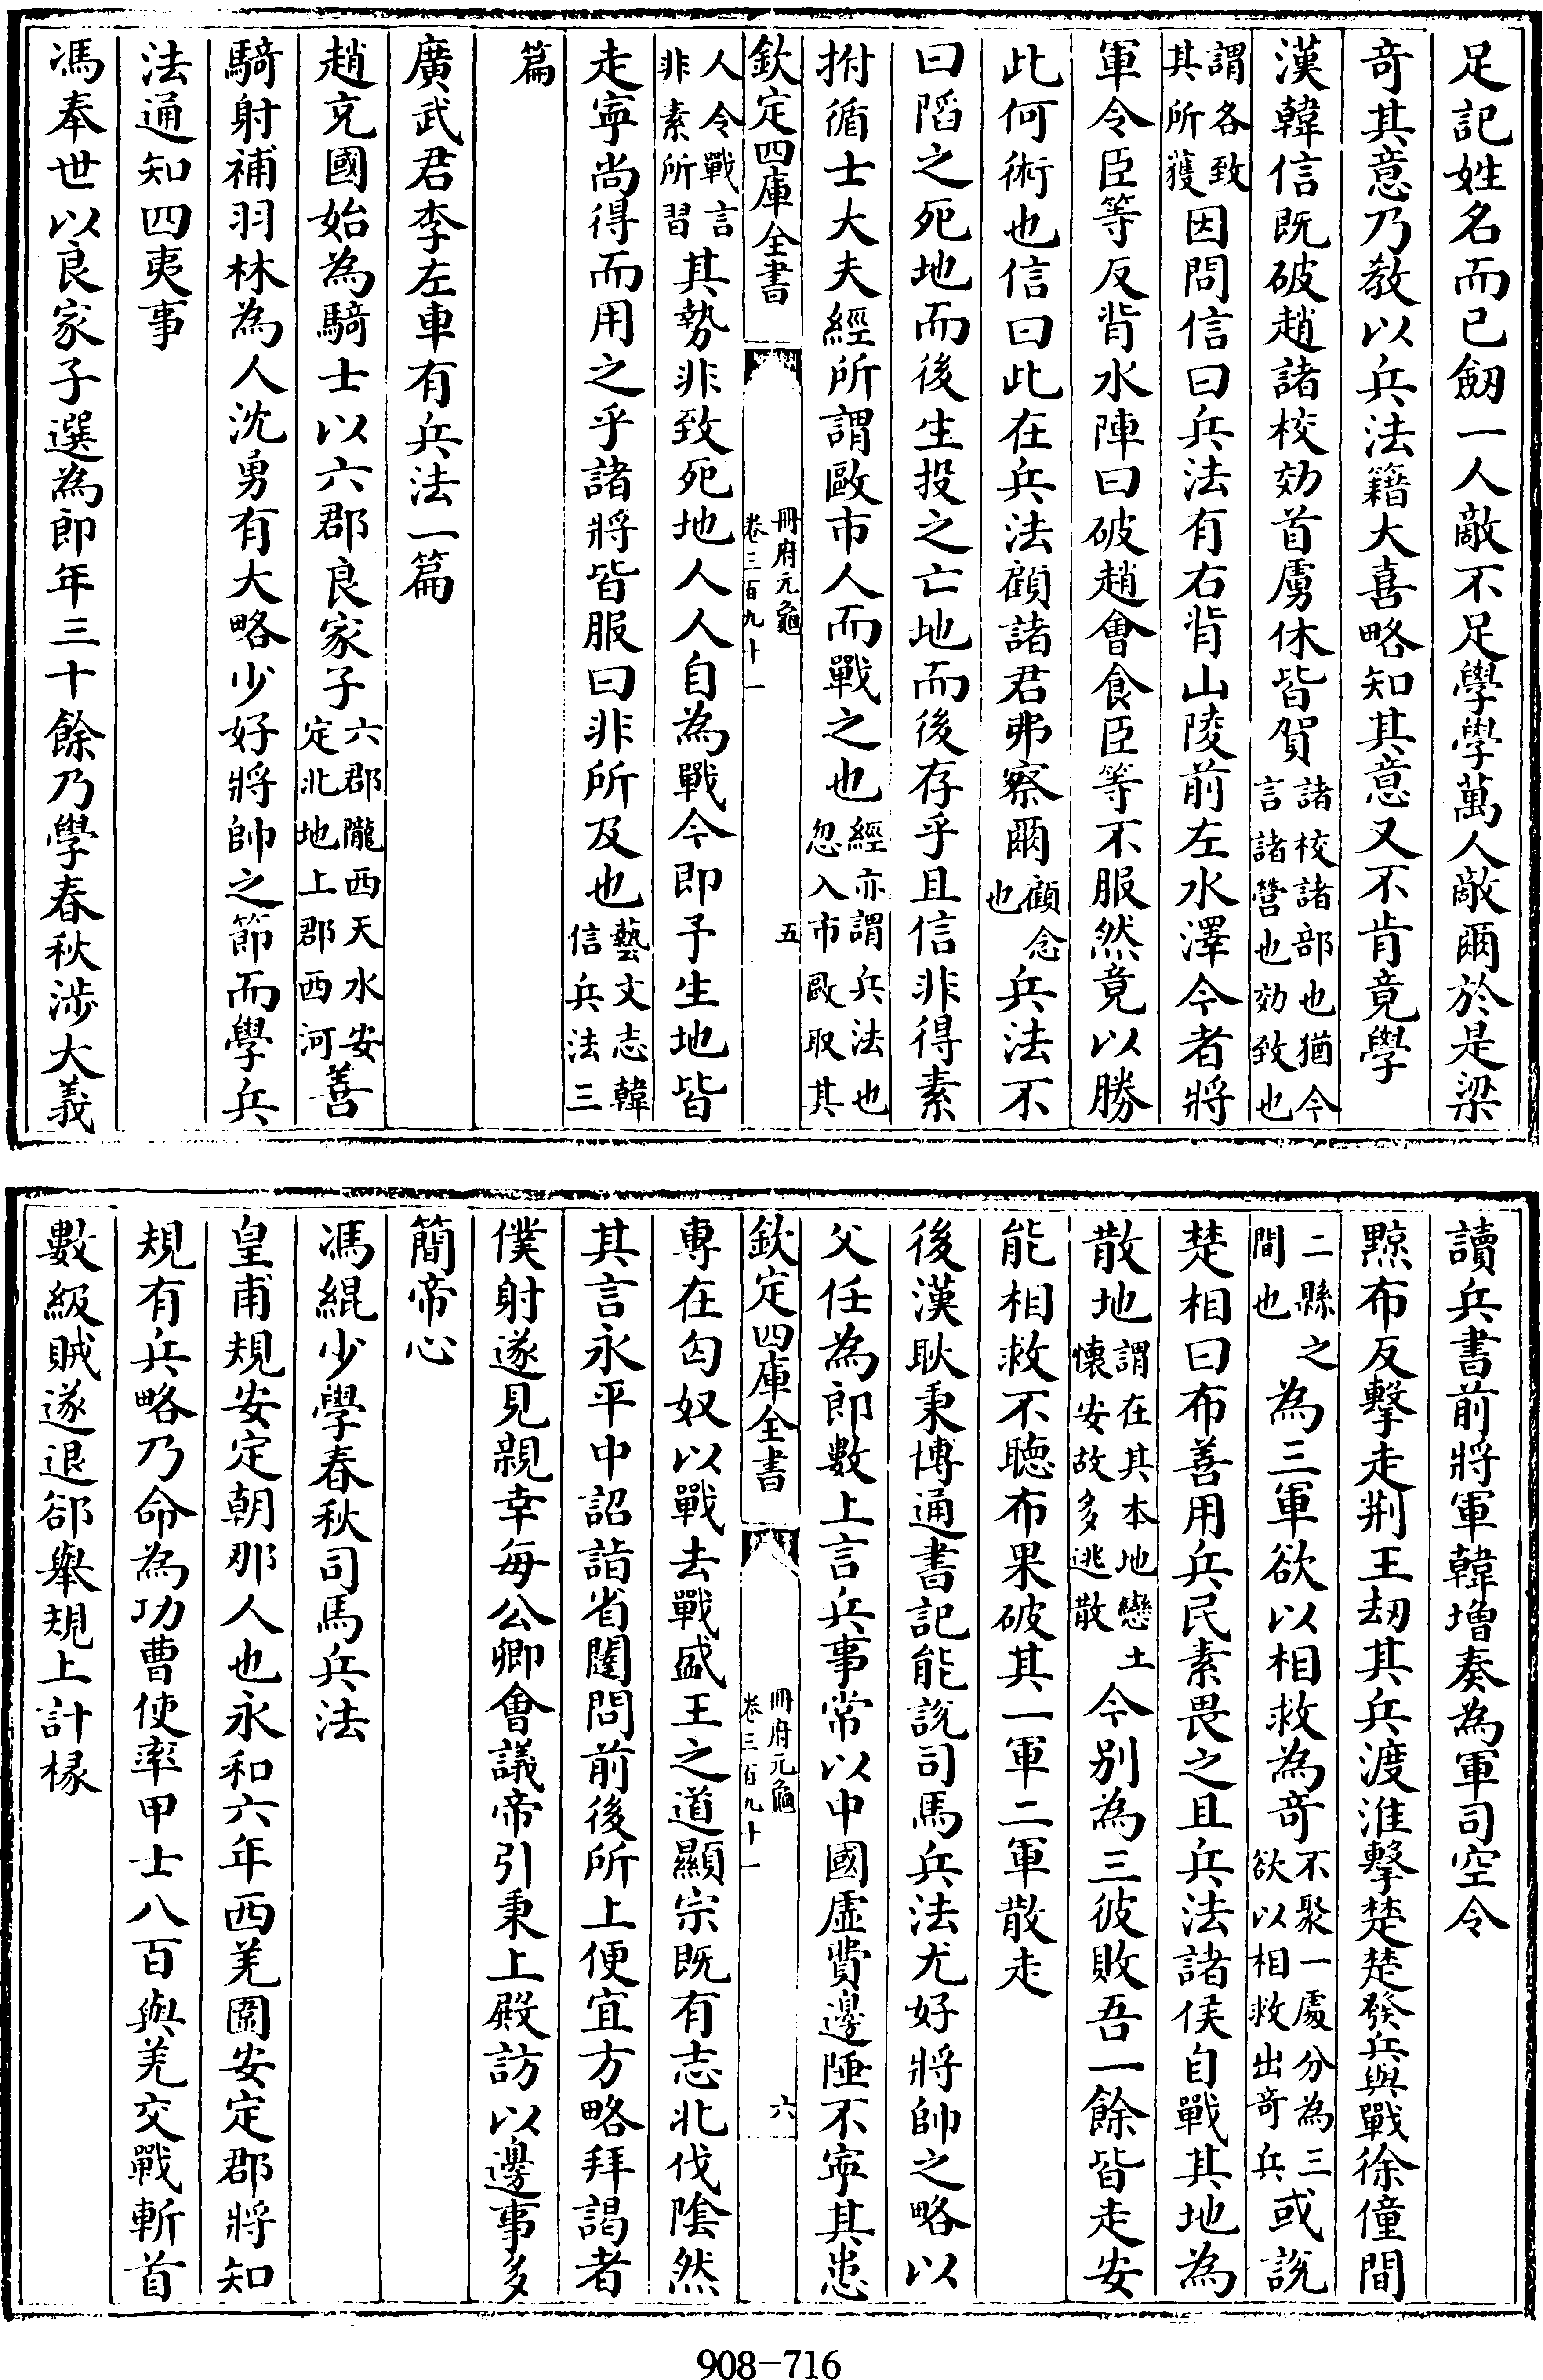 足記姓名而已劒一人敵不足學學萬人敵爾於是梁
奇其意乃教以兵法籍大喜略知其意又不肯竟學
漢韓信既破趙諸校効首虜休皆賀諸校諸部也猶今言諸營也効致也
謂各致其所獲因問信曰兵法有右背山陵前左水澤今者將
軍令臣等反背水陣曰破趙會食臣等不服然竟以勝
此何術也信曰此在兵法顧諸君弗察爾顧念也兵法不
曰䧟之死地而後生投之亡地而後存乎且信非得素
拊循士大夫經所謂敺市人而戰之也經亦謂兵法也忽入市敺取其
欽定四庫全書 冊府元龜卷三百九十一 五
人令戰言非素所習其勢非致死地人人自為戰今即予生地皆
走寜尚得而用之乎諸將皆服曰非所及也藝文志韓信兵法三
篇
廣武君李左車有兵法一篇
趙充國始為騎士以六郡良家子六郡隴西天水安定北地上郡西河善
騎射補羽林為人沈勇有大略少好將帥之節而學兵
法通知四夷事
馮奉世以良家子選為郎年三十餘乃學春秋涉大義
讀兵書前將軍韓增奏為軍司空令
黥布反擊走荆王刼其兵渡淮擊楚楚發兵與戰徐僮間
二縣之間也為三軍欲以相救為奇不聚一處分為三欲以相救出奇兵或說
楚相曰布善用兵民素畏之且兵法諸侯自戰其地為
散地謂在其本地戀土懷安故多逃散今别為三彼敗吾一餘皆走安
能相救不聽布果破其一軍二軍散走
後漢耿秉博通書記能說司馬兵法尤好將帥之略以
父任為郎數上言兵事常以中國虚費邊陲不寜其患
欽定四庫全書 冊府元龜卷三百九十一 六
專在匈奴以戰去戰盛王之道顯宗既有志北伐陰然
其言永平中詔詣省闥問前後所上便宜方略拜謁者
僕射遂見親幸每公卿會議帝引秉上殿訪以邊事多
簡帝心
馮緄少學春秋司馬兵法
皇甫規安定朝那人也永和六年西羌圍安定郡將知
規有兵略乃命為功曹使率甲士八百與羌交戰斬首
數級賊遂退郤舉規上計掾
908-716